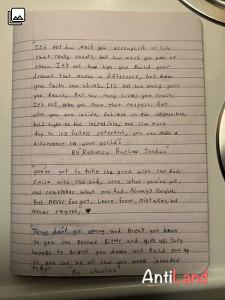 "It's not how much you accomplish in life
that really counts, but how much you give to
others. It's not how high you build your
dreams that makes a difference, but how
your faith can climb. It's not how many goals
you reach, but how many lives you touch.
It's not who you know that matters, but
who you are inside. Believe in the impossible,
hold tight to the incredible, and live each
day to its fullest potential, you can make a
difference in your world".
By Rebecca Barlow Jordan
"you've got to take the good with the bad,
smile with the sad, love what you've got,
and remember what you had. Always forgive,
But never forget, Learn from mistakes, but
Never regret,
Things don't go wrong and Break your heart
So you can Become Bitter and give up. They
happen to Break you down and Build you up
So you can be all that you were intended
to Be"
By Charles
AntiLand